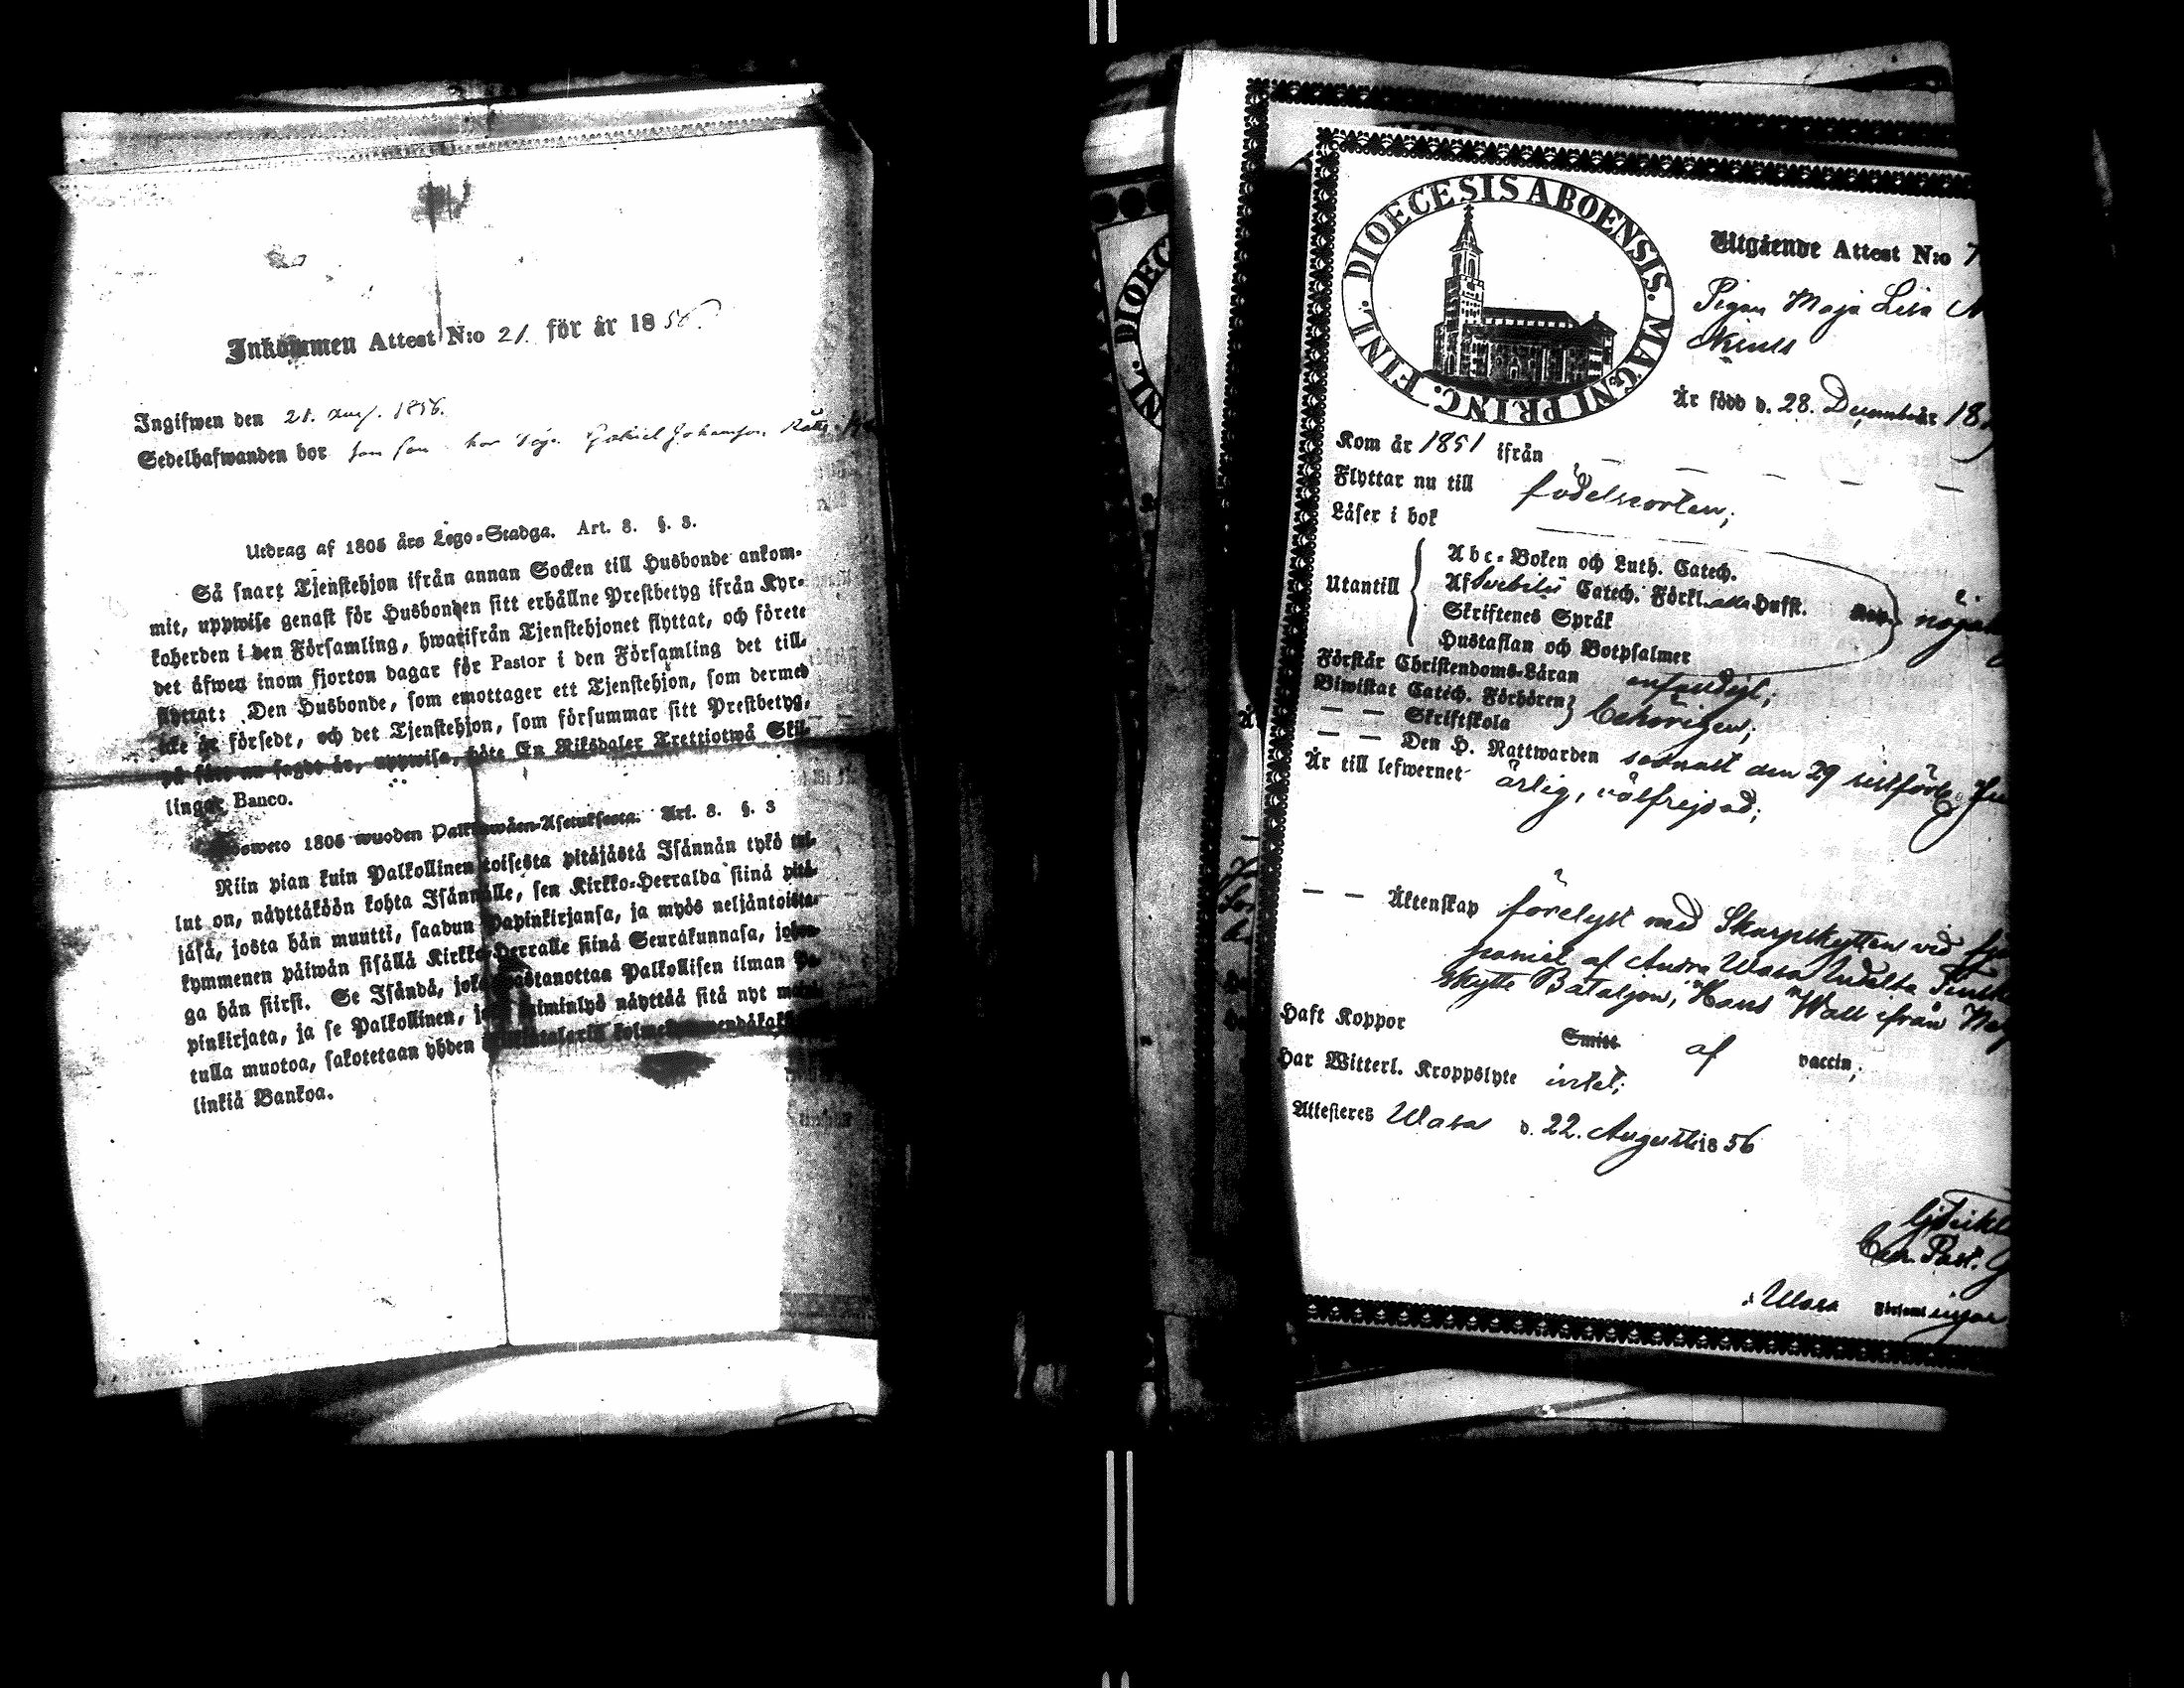 Inkommen Attest N:o 21. för år 1856.
Ingifwen den 28. Aug. 1856.
Sedelhafwanden bor hos Gabriel Johansson
Utdrag af 1805 års Lego-Stadga. Art. 8. §. 3.
Så snart Tjenstehjon ifrån annan Socken till Husbonde ankom-
mit, uppwise genast för Husbonden sitt erhållne Prestbetyg ifrån Kyr-
koherden i den Församling, hwarifrån Tjenstehjonet flyttat, och förete
det äfwen inom fjorton dagar för Pastor i den Församling det till-
flyttat: Den Husbonde, som emottager ett Tjenstehjon, som dermed
icke är försedt, och det Tjenstehjon, som försummar sitt Prestbetyg,
på sätt nu sagdt är, uppwisa, böte En Riksdaler Trettiotwå Skil-
lingar Banco.
1805 wuoden Palkawäen-Asetuksesta. Art. 8. §. 3
Niin pian kuin Palkollinen toisesta pitäjästä Isännän tykö tul-
lut on, näyttäköön kohta Isännälle, sen Kirkko-Herralda siinä pitä-
jäsä, josta hän muutti, saadun Papinkirjansa, ja myös neljäntoista-
kymmenen päiwän sisällä Kirkko-Herralle siinä Seurakunnasa, johon-
ga hän siirst. Se Isändä, joka wastanottaa Palkollisen ilman Pa-
pinkirjata, ja se Palkollinen, joka laiminlyö näyttää sitä nyt
tulla muotoa, sakotetaan yhden
linkiä Bankoa.
DIOECESIS ABOENSIS. MAGNI PRINC. FINL.
Utgående Attest N:o 7
Pigan Maja Lisa
Är född d. 28. December år 18
Kom år 1851 ifrån — — — — —
Flyttar nu till födelseorten;
Läser i bok
Utantill
Abc-Boken och Luth. Catech.
Af Svebilii Catech. Förkl. Hufst.
Skriftenes Språk
Hustaflan och Botpsalmer
Förstår Christendoms-Läran enfaldigt;
Biwistat Catech. Förhören
— — Skriftskola behörigen;
— — Den H. Nattwarden sednast den 29 sistförl.
Är till lefwernet ärlig, välfrejdad;
— — Äktenskap förelyst med Skarpskytten vid
paniet af Andra Wasa Indelta Finska
Skytte Bataljon, Hans Wall ifrån
Haft Koppor Smitt af vaccin;
Har Witterl. Kroppslyte intet;
Attesteres Wasa d. 22. Augusti 1856
Past.
i Wasa Församlingar